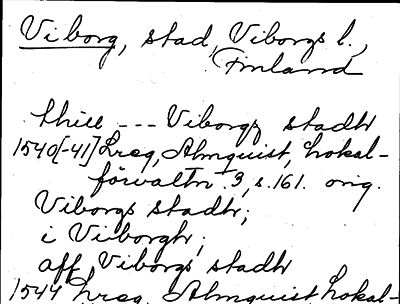 Viborg, stad, Viborgs l.,
Finland
thill --- Viborgx stadhr
1540[-41] Lreg, Almquist, Lokal-
förvaltn. 3, s. 161. orig.
Viborgs stadhr;
i Viiborgh;
aff Viborgs stadhr
1544 Lreg. Almquist, Lokal-